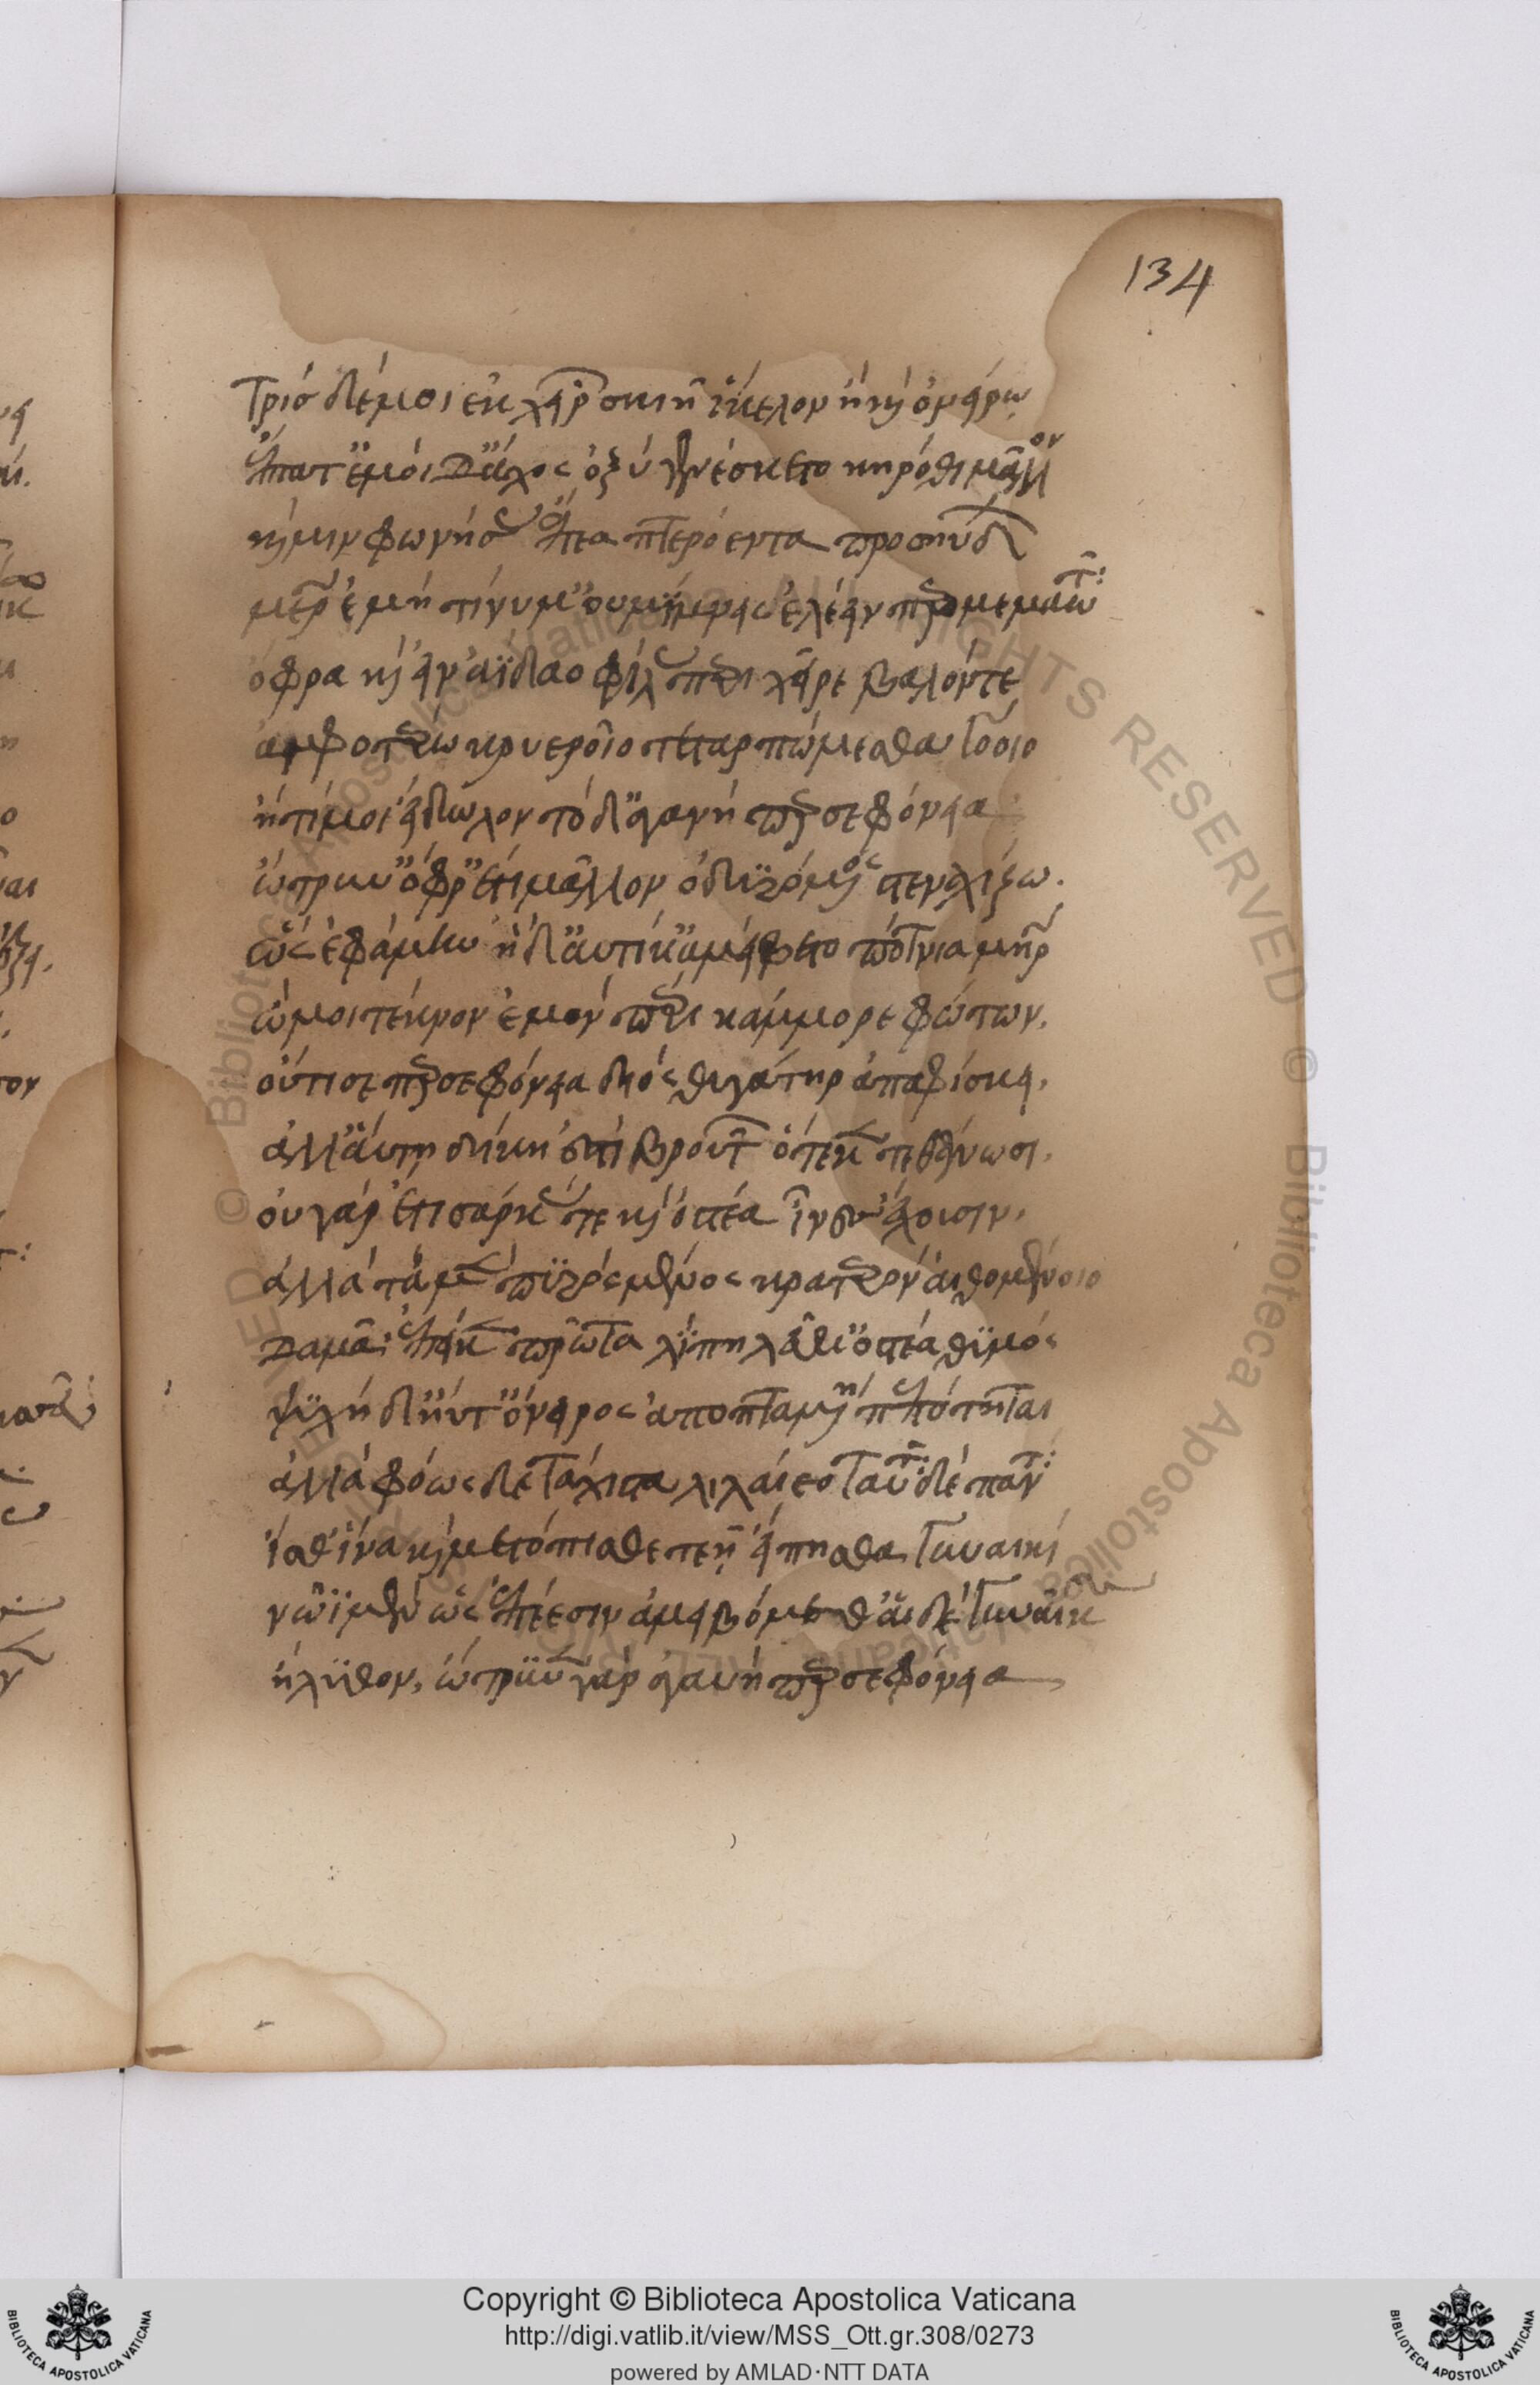 134
τρὶσ δέ μοι ἐκ χειρ σκιῆ ἴκελον ἢ καὶ ὀνείρω
ἔπτατ' ἐμοὶ δ' ἄχος ὀξὺ γενέσκετο κηρόθι μᾶλλον
καί μιν φωνήσας ἔπεα πτερόεντα προσηύδων
μῆτερ ἐμὴ τί νύ μ' οὐ μίμνεις ἑλέειν περ μεμαῶτα
ὄφρα καὶ εἰν ἀΐδαο φίλας περὶ χεῖρε βαλόντε
ἀμφοτέρω κρυεροῖο τεταρπώμεσθα γόοιο
ἤ τί μοι εἴδωλον τόδ' ἀγαυὴ περσεφόνεια
ὤτρυν' ὄφρ' ἔτι μᾶλλον ὀδυρόμενος στεναχίζω.
ὣς ἐφάμην ἡ δ' αὐτίκ' ἀμείβετο πότνια μήτηρ
ὤ μοι τέκνον ἐμὸν περὶ κάμμορε φώτων.
οὔτι σε περσεφόνεια διὸς θυγάτηρ ἀπαφίσκει.
ἀλλ' αὕτη δίκη ἐστὶ βροτῶν ὅτε κεν τεθνήκωσι.
οὐ γὰρ ἔτι σάρκας τε καὶ ὀστέα ἶνες ἔχουσιν.
ἀλλὰ τὰ μέν τε πυρὸς μένος κρατερὸν αἰθομένοιο
δαμᾶ ἐπεί κεν πρῶτα λίπη λεύκ' ὀστέα θυμός
ψυχὴ δ' ἠΰτ' ὄνειρος ἀποπταμένη πεπότηται
ἀλλὰ φόως δὲ τάχιστα λιλαίεο ταῦτα δὲ πάντα
ἴσθ' ἵνα καὶ μετόπισθε τεῆ εἴπησθα γυναικί
νῶϊ μὲν ὣς ἐπέεσιν ἀμειβόμεθ' αἱ δὲ γυναῖκες
ἤλυθον, ὤτρυνεν γὰρ ἀγαυὴ περσεφόνεια
Copyright © Biblioteca Apostolica Vaticana
http://digi.vatlib.it/view/MSS_Ott.gr.308/0273
powered by AMLAD·NTT DATA